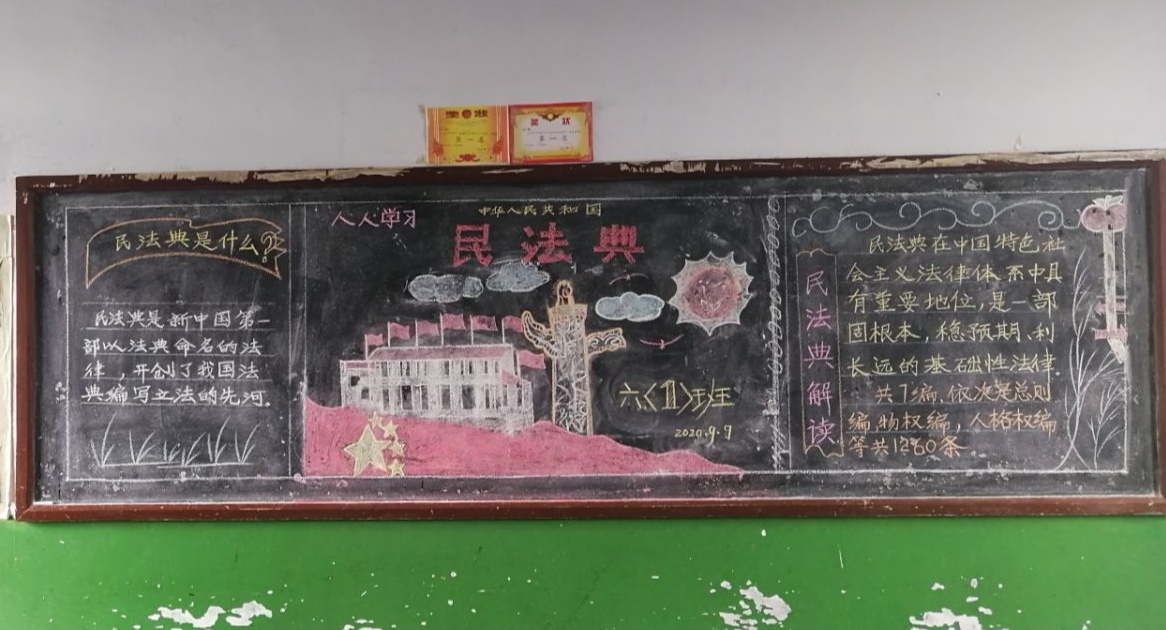 奖 状
第一名
人人学习
中华人民共和国
民法典
民法典是什么?
民法典是新中国第一
部以法典命名的法
律，开创了我国法
典编写立法的先河.
六〈1〉班
2020.9.9
民法典解读
民法典在中国特色社
会主义法律体系中具
有重要地位,是一部
固根本,稳预期,利
长远的基础性法律.
共7编,依次是总则
编,物权编,人格权编
等共1260条